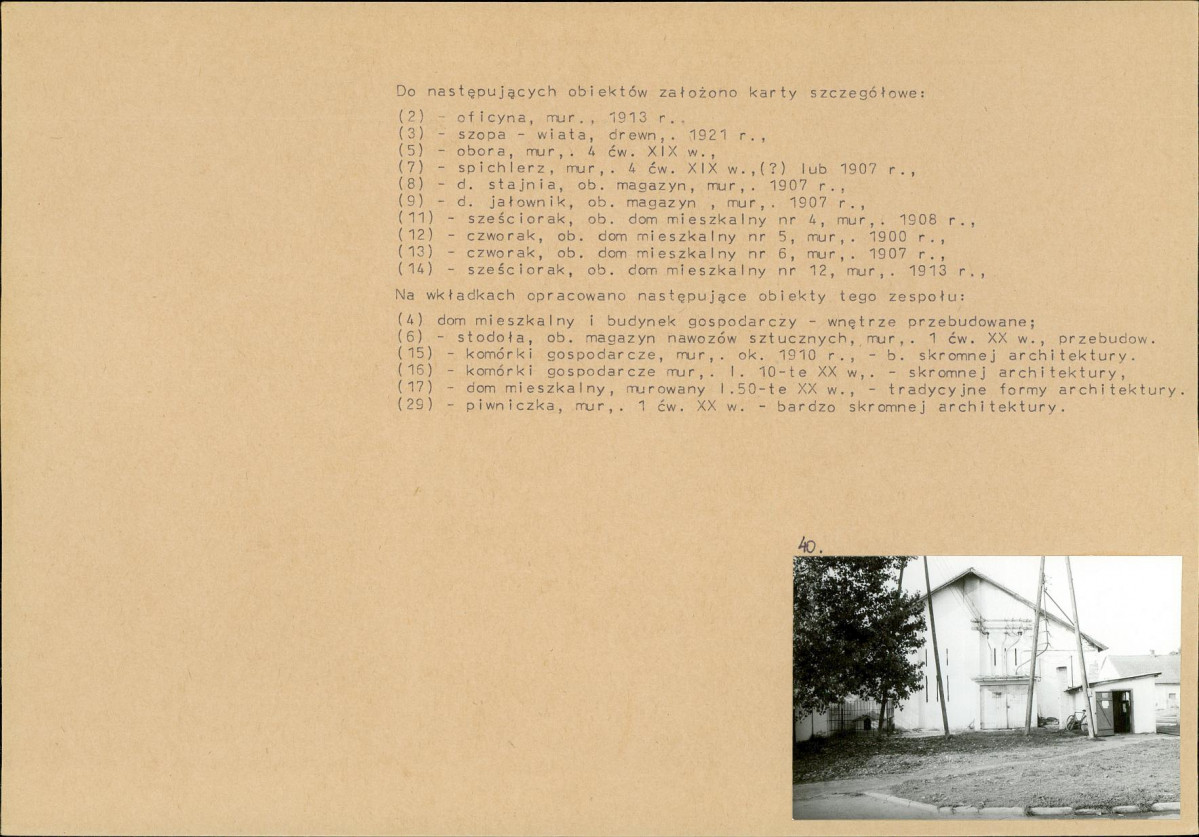 Do następujących obiektów założono karty szczegółowe:
(2) - oficyna, mur., 1913 r.,
(3) - szopa - wiata, drewn,. 1921 r.,
(5) - obora, mur,. 4 ćw. XIX w.,
(7) - spichlerz, mur,. 4 ćw. XIX w.,(?) lub 1907 r.,
(8) - d. stajnia, ob. magazyn, mur,. 1907 r.,
(9) - d. jałownik, ob. magazyn , mur,. 1907 r.,
(11) - sześciorak, ob. dom mieszkalny nr 4, mur,. 1908 r.,
(12) - czworak, ob. dom mieszkalny nr 5, mur,. 1900 r.,
(13) - czworak, ob. dom mieszkalny nr 6, mur,. 1907 r.,
(14) - sześciorak, ob. dom mieszkalny nr 12, mur,. 1913 r.,
Na wkładkach opracowano następujące obiekty tego zespołu:
(4) dom mieszkalny i budynek gospodarczy - wnętrze przebudowane;
(6) - stodoła, ob. magazyn nawozów sztucznych, mur,. 1 ćw. XX w., przebudow.
(15) - komórki gospodarcze, mur,. ok. 1910 r., - b. skromnej architektury.
(16) - komórki gospodarcze mur,. l. 10-te XX w,. - skromnej architektury,
(17) - dom mieszkalny, murowany l.50-te XX w., - tradycyjne formy architektury.
(29) - piwniczka, mur,. 1 ćw. XX w. - bardzo skromnej architektury.
40.